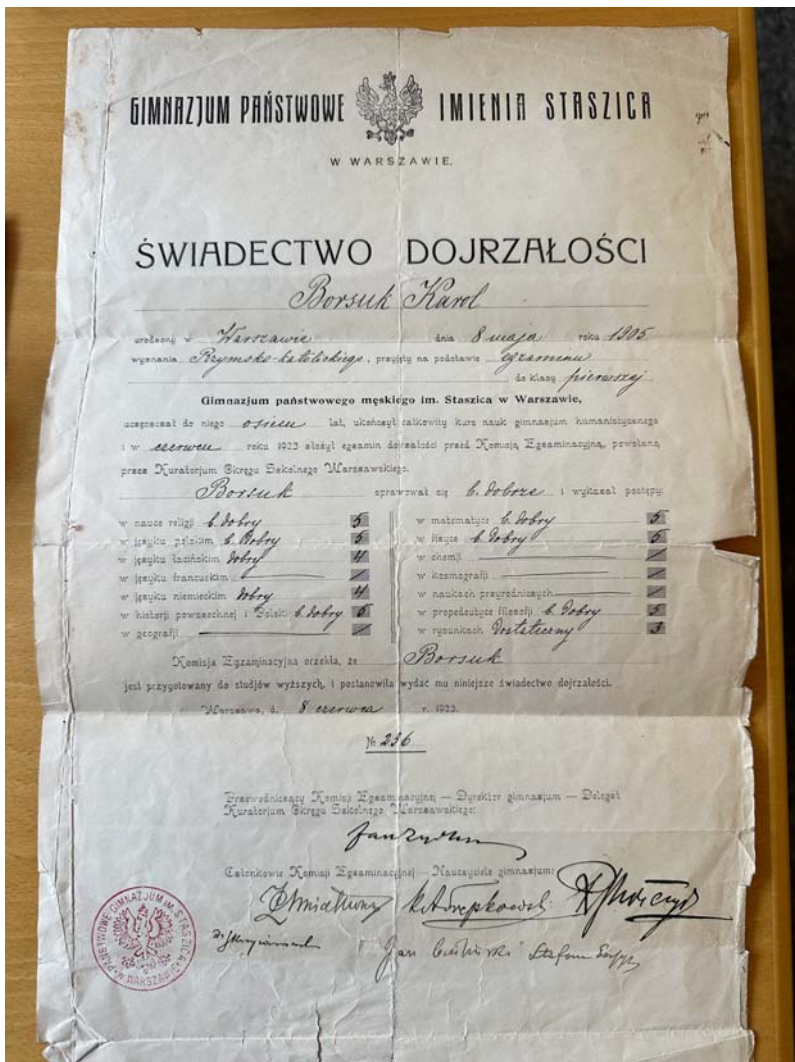 GIMNAZJUM PAŃSTWOWE IMIENIA STASZICA
W WARSZAWIE.
ŚWIADECTWO DOJRZAŁOŚCI
Borsuk Karol
urodzony w Warszawie dnia 8 maja roku 1905
wyznania Rzymsko-katolickiego, przyjęty na podstawie egzaminu
do klasy pierwszej
Gimnazjum państwowego męskiego im. Staszica w Warszawie,
uczęszczał do niego osiem lat, ukończył całkowity kurs nauk gimnazjum humanistycznego
i w czerwcu roku 1923 złożył egzamin dojrzałości przed Komisją Egzaminacyjną, powołaną
przez Kuratorjum Okręgu Szkolnego Warszawskiego.
Borsuk sprawował się b. dobrze i wykazał postępy:
w nauce religji b. dobry 5
w języku polskim b. dobry 5
w języku łacińskim dobry 4
w języku francuskim
w języku niemieckim dobry 4
w historji powszechnej i Polski b. dobry 5
w geografji
w matematyce b. dobry 5
w fizyce b. dobry 5
w chemji
w kosmografji
w naukach przyrodniczych
w propedeutyce filozofji b. dobry 5
w rysunkach dostateczny 3
Komisja Egzaminacyjna orzekła, że Borsuk
jest przygotowany do studjów wyższych, i postanowiła wydać mu niniejsze świadectwo dojrzałości.
Warszawa, d. 8 czerwca r. 1923.
№ 236
Przewodniczący Komisji Egzaminacyjnej — Dyrektor gimnazjum — Delegat
Kuratorjum Okręgu Szkolnego Warszawskiego:
Członkowie Komisji Egzaminacyjnej — Nauczyciele gimnazjum:
Jan Stefan
PAŃSTWOWE GIMNAZJUM IM. STASZICA
W WARSZAWIE